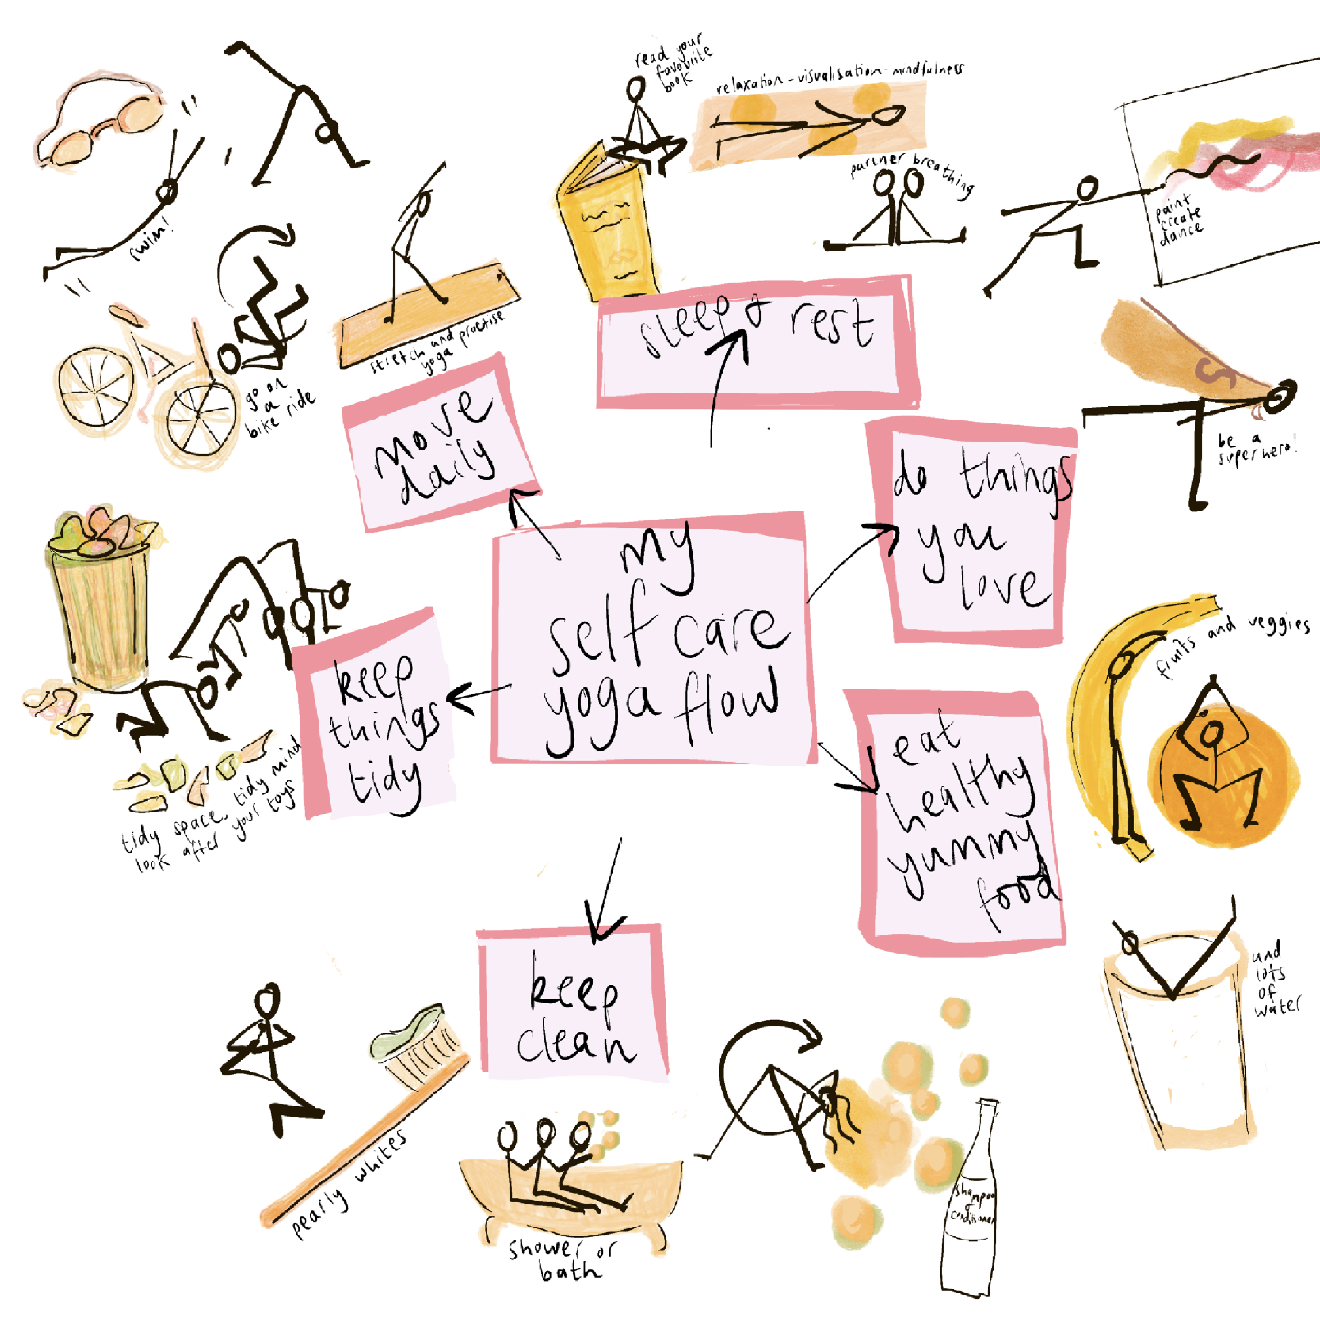 read your
favourite
book
relaxation - visualisation - mindfulness
partner breathing
paint
create
dance
swim!
stretch and practise
yoga
go on
a
bike ride
sleep & rest
move
daily
do things
you
love
S
be a
superhero!
my
self care
yoga flow
keep
things
tidy
tidy space, tidy mind
look after your toys
eat
healthy
yummy
food
fruits and veggies
and
lots
of
water
keep
clean
pearly whites
shower or
bath
shampoo
&
conditioner